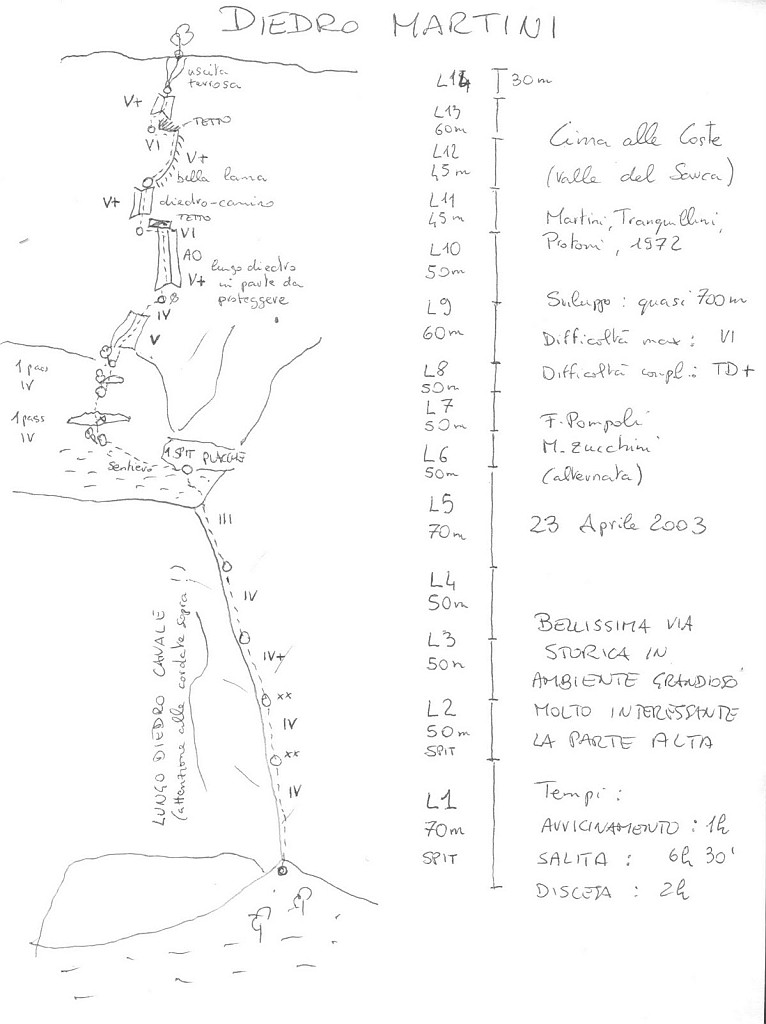 DIEDRO MARTINI
uscita
terrosa
V+
TETTO
VI
V+
bella lama
V+
diedro-camino
TETTO
VI
A0
V+
lungo diedro
in parte da
proteggere
IV
V
1 pass
IV
1 pass
IV
1 SPIT PLACCHE
Sentiero
III
IV
IV+
xx
IV
xx
IV
LUNGO DIEDRO CANALE
(attenzione alle cordate sopra!!)
L14 30m
L13
60m
L12
45m
L11
45m
L10
50m
L9
60m
L8
50m
L7
50m
L6
50m
L5
70m
L4
50m
L3
50m
L2
50m
SPIT
L1
70m
SPIT
Cima alle Coste
(Valle del Sarca)
Martini, Tranquillini,
1972
Sviluppo : quasi 700m
Difficoltà max : VI
Difficoltà compl.: TD+
F. Pompoli
M. Zucchini
(alternata)
23 Aprile 2003
BELLISSIMA VIA
STORICA IN
AMBIENTE GRANDIOSO
MOLTO INTERESSANTE
LA PARTE ALTA
Tempi :
AVVICINAMENTO : 1h
SALITA : 6h 30'
DISCESA : 2h